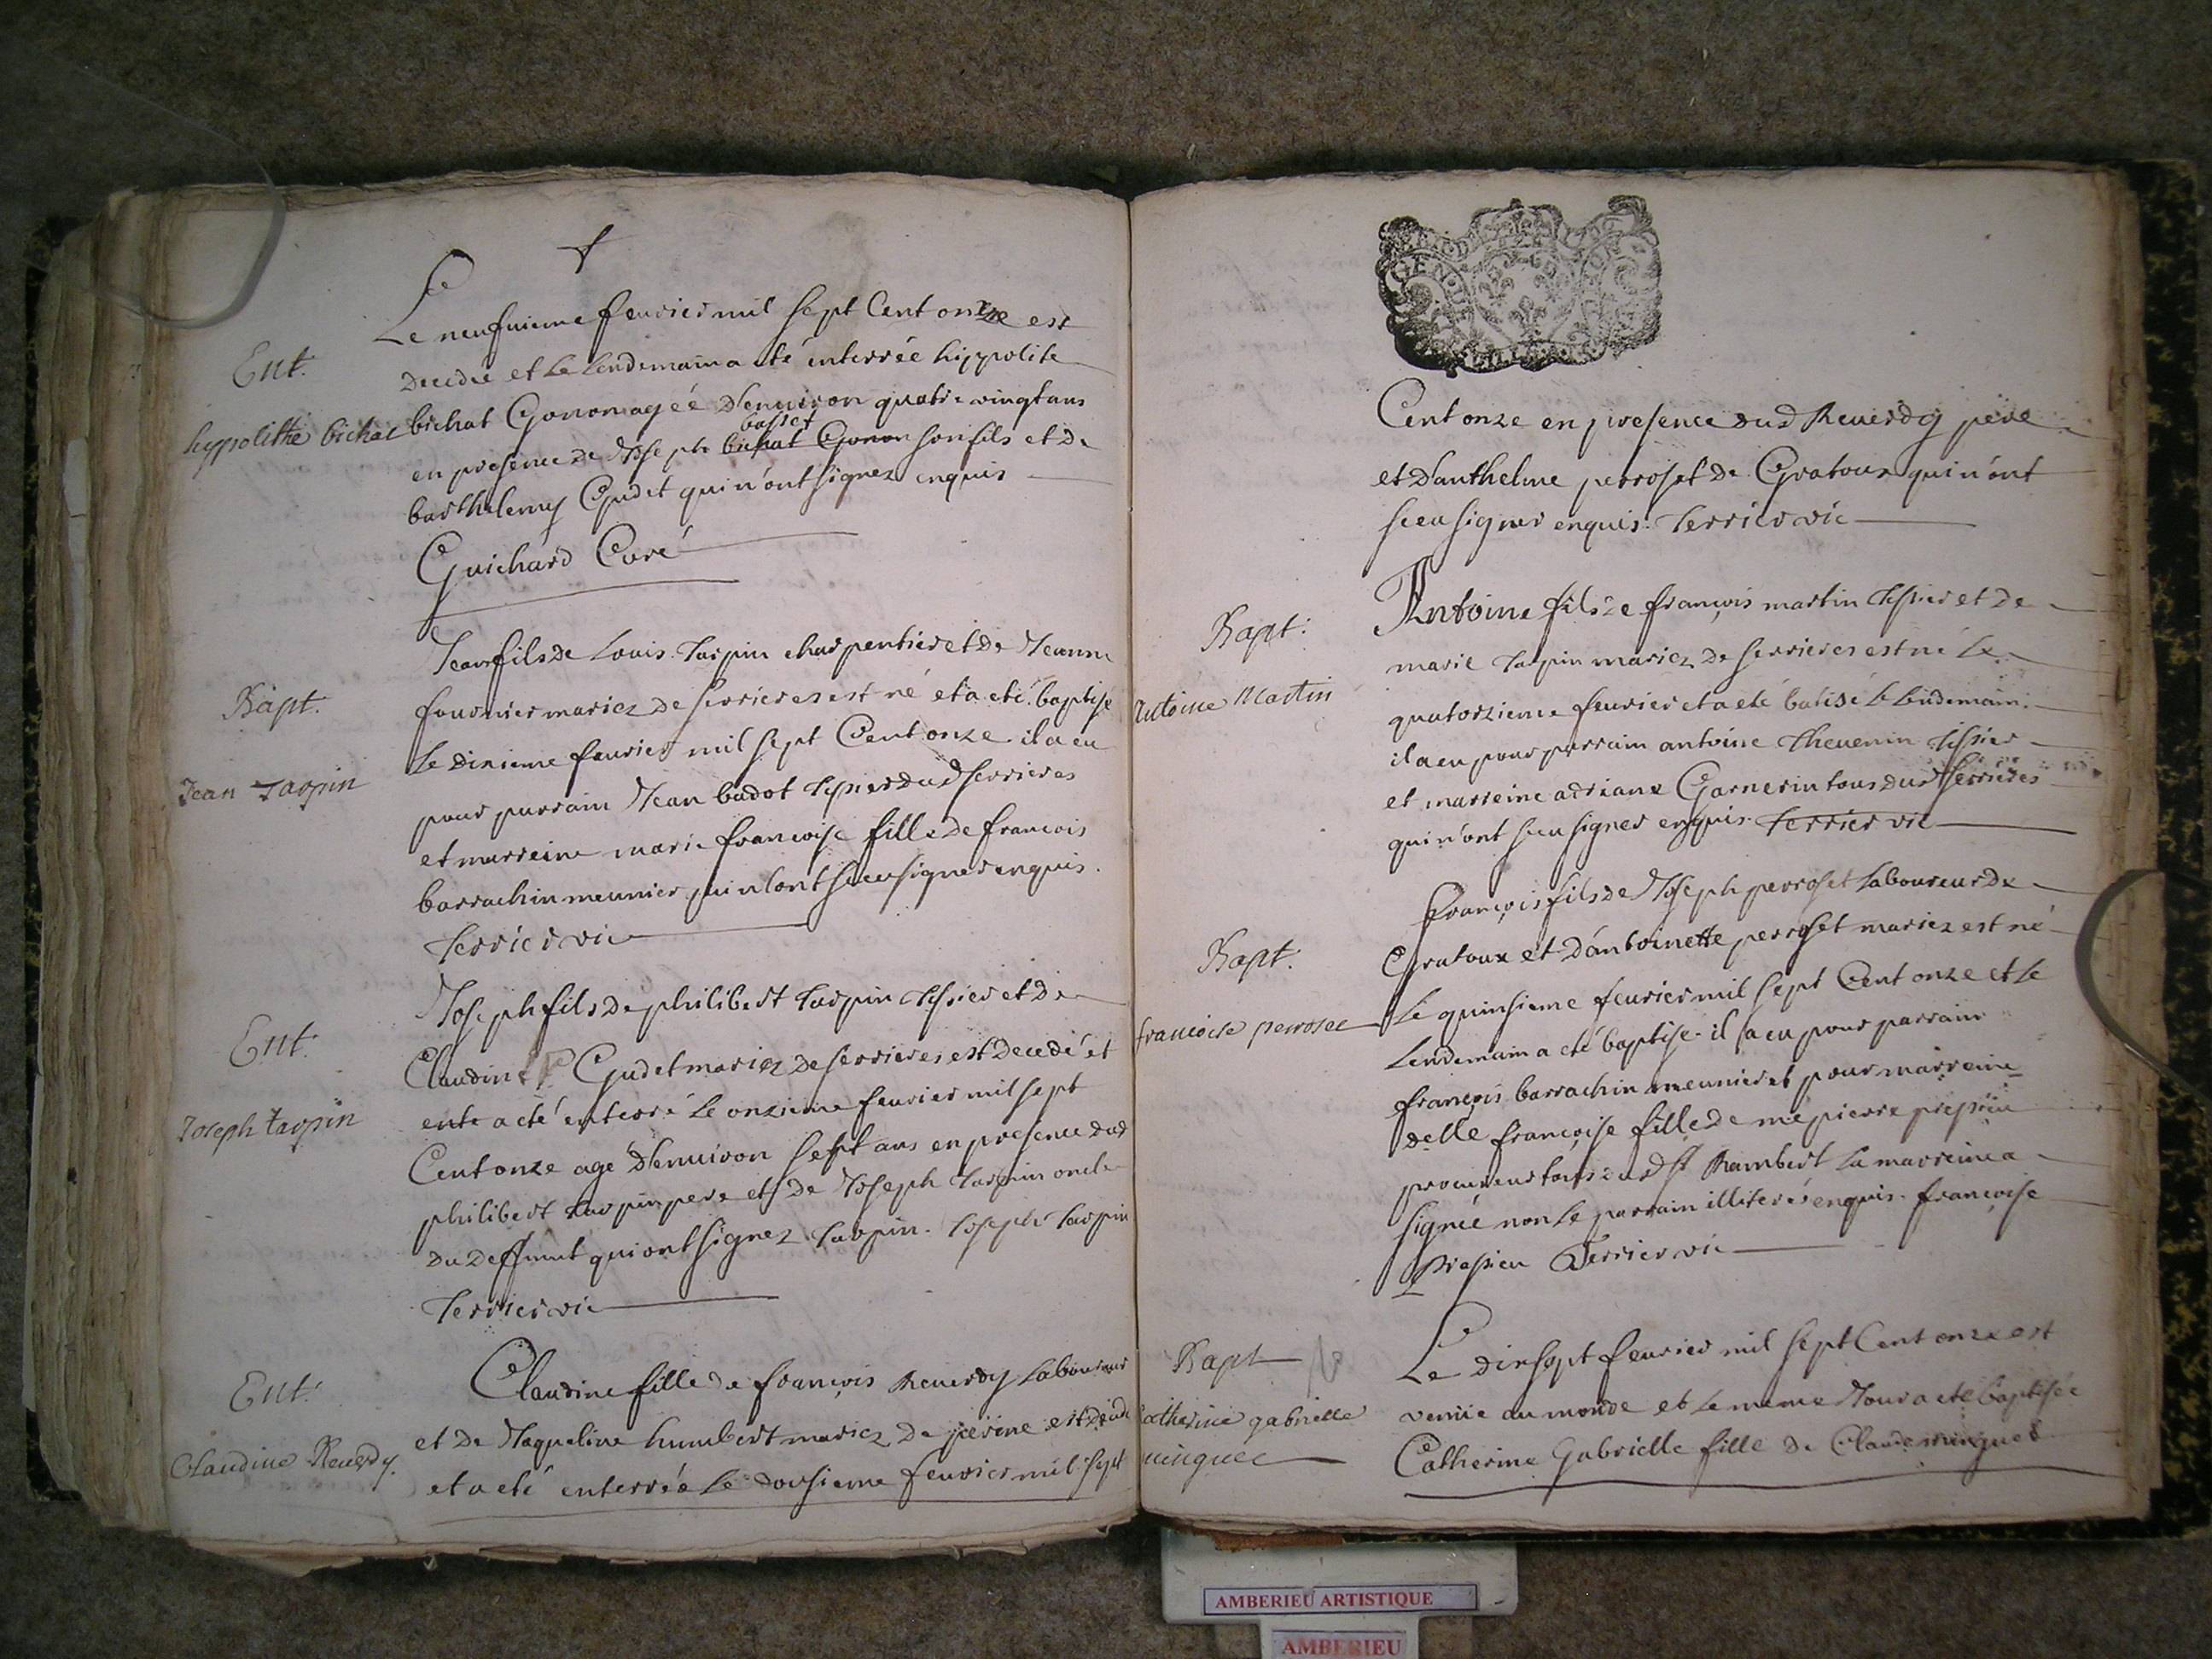 Le neufuieme feurier mil sept Cent onze est
Ent.
decedée et le lendemain a eté enterrée hippolite
hyppolithe bichat
bichat Gonon agéé d'enuiron quatre vingt ans
basset
en presence de Joseph bichat Gonon son fils et de
barthelemy Gudet qui n'ont signez enquis
Guichard Curé
Jean fils de Louis tarpin charpentier et de Jeanne
Bapt.
fournier mariez de serrieres est né et a eté baptise
le dixieme feurier mil sept Cent onze il a eu
Jean Tarpin
pour parrain Jean budot tissier dud serrieres
et marreine marie françoise fille de francois
barrachin meunier qui n'ont sceu signer enquis.
terrier vic
Joseph fils de philibert tarpin tissier et de
Ent.
Claudine Gudet mariez de serrieres est decedé et
Joseph tarpin
a eté enterré le onzieme feurier mil sept
Cent onze age d'enuiron sept ans en presence dud
philibert tarpin pere et de Joseph tarpin oncle
du deffunt qui ont signez tarpin. Joseph tarpin
terrier vic
Claudine fille de françois Reuerdy laboureur
Ent.
et de Jaqueline humbert mariez de jerine est decede
Claudine Reuerdy.
et a eté enterrée le dousieme feurier mil sept
Cent onze en presence dud Reuerdy pere
et d'anthelme perroset de Gratoux qui n'ont
sceu signer enquis. terrier vic
Antoine fils de françois martin tissier et de
Bapt.
marie tarpin mariez de serrieres est né le
Antoine Martin
quatorzieme feurier et a eté batisé le lendemain.
il a eu pour parrain antoine theuenin tissier
et marreine adriane Garnerin tous dud serrieres
qui n'ont sceu signer enquis. terrier vic
François fils de Joseph perroset laboureur de
Bapt.
Gratoux et d'antoinette perroset mariez est né
le quinsieme feurier mil sept Cent onze et le
francoise perroset
lendemain a eté baptise. il a eu pour parrain
françois barrachin meunier et pour marreine
delle françoise fille de me pierre prepieu
procureur tous dud st Rambert la marreine a
signée non le parrain illiteré enquis. françoise
Prepieu Terrier vic
Le dixsept feurier mil sept Cent onze est
Bapt
venüe au monde et le meme Jour a eté baptisée
Catherine gabrielle
Catherine Gabrielle fille de Claude minguet
minguet
AMBERIEU ARTISTIQUE
AMBERIEU